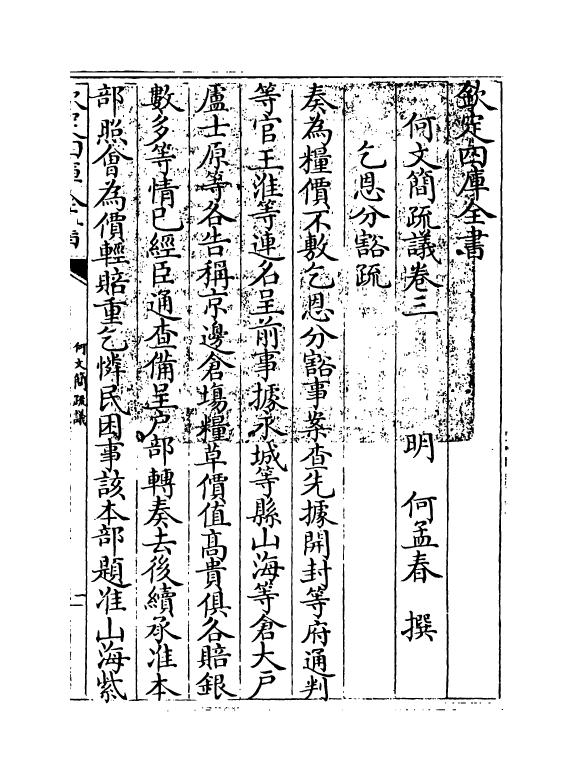 欽定四庫全書
何文簡疏議卷三
明 何孟春 撰
乞恩分豁疏
奏為糧價不敷乞恩分豁事案查先據開封等府通判
等官王淮等連名呈前事據永城等縣山海等倉大戶
盧士原等各告稱京邊倉塲糧草價值高貴俱各賠銀
數多等情已經臣通查備呈户部轉奏去後續承准本
部照㑹為價輕賠重乞憐民困事該本部題准山海紫
何文簡疏議